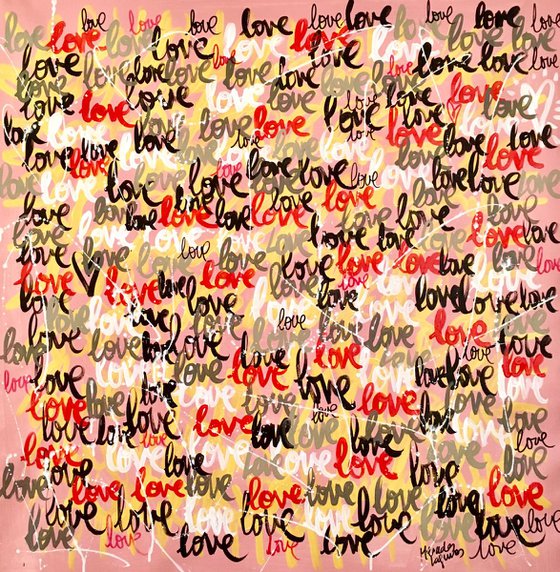 love love love love love love love love
love love love love love love love love love
love love love love love love love love love love
love love love love love love love love
love love love love love love love love love
love love love love love love love love love
love love love love love love love love love
love love love love love love love love love
love love love love love love love love love
love love love love love love love love love
love love love love love love love love
love love love love love love love love love
love love love love love love love love love
love love love love love love love love love
love love love love love love love love
love love love love love love love love love
love love love love love love love love
love love love love love love love love love
love love love love love love love love
love love love love love love love love
love love love love love love love love
love love love love love love love love
love love love love love
Mercedes
Lagunas